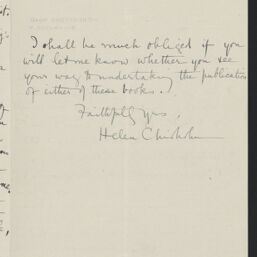 I shall be much obliged if you
will let me know whether you see
your way to undertaking the publication
of either of these books.
Faithfully yrs,
Helen Chisholm